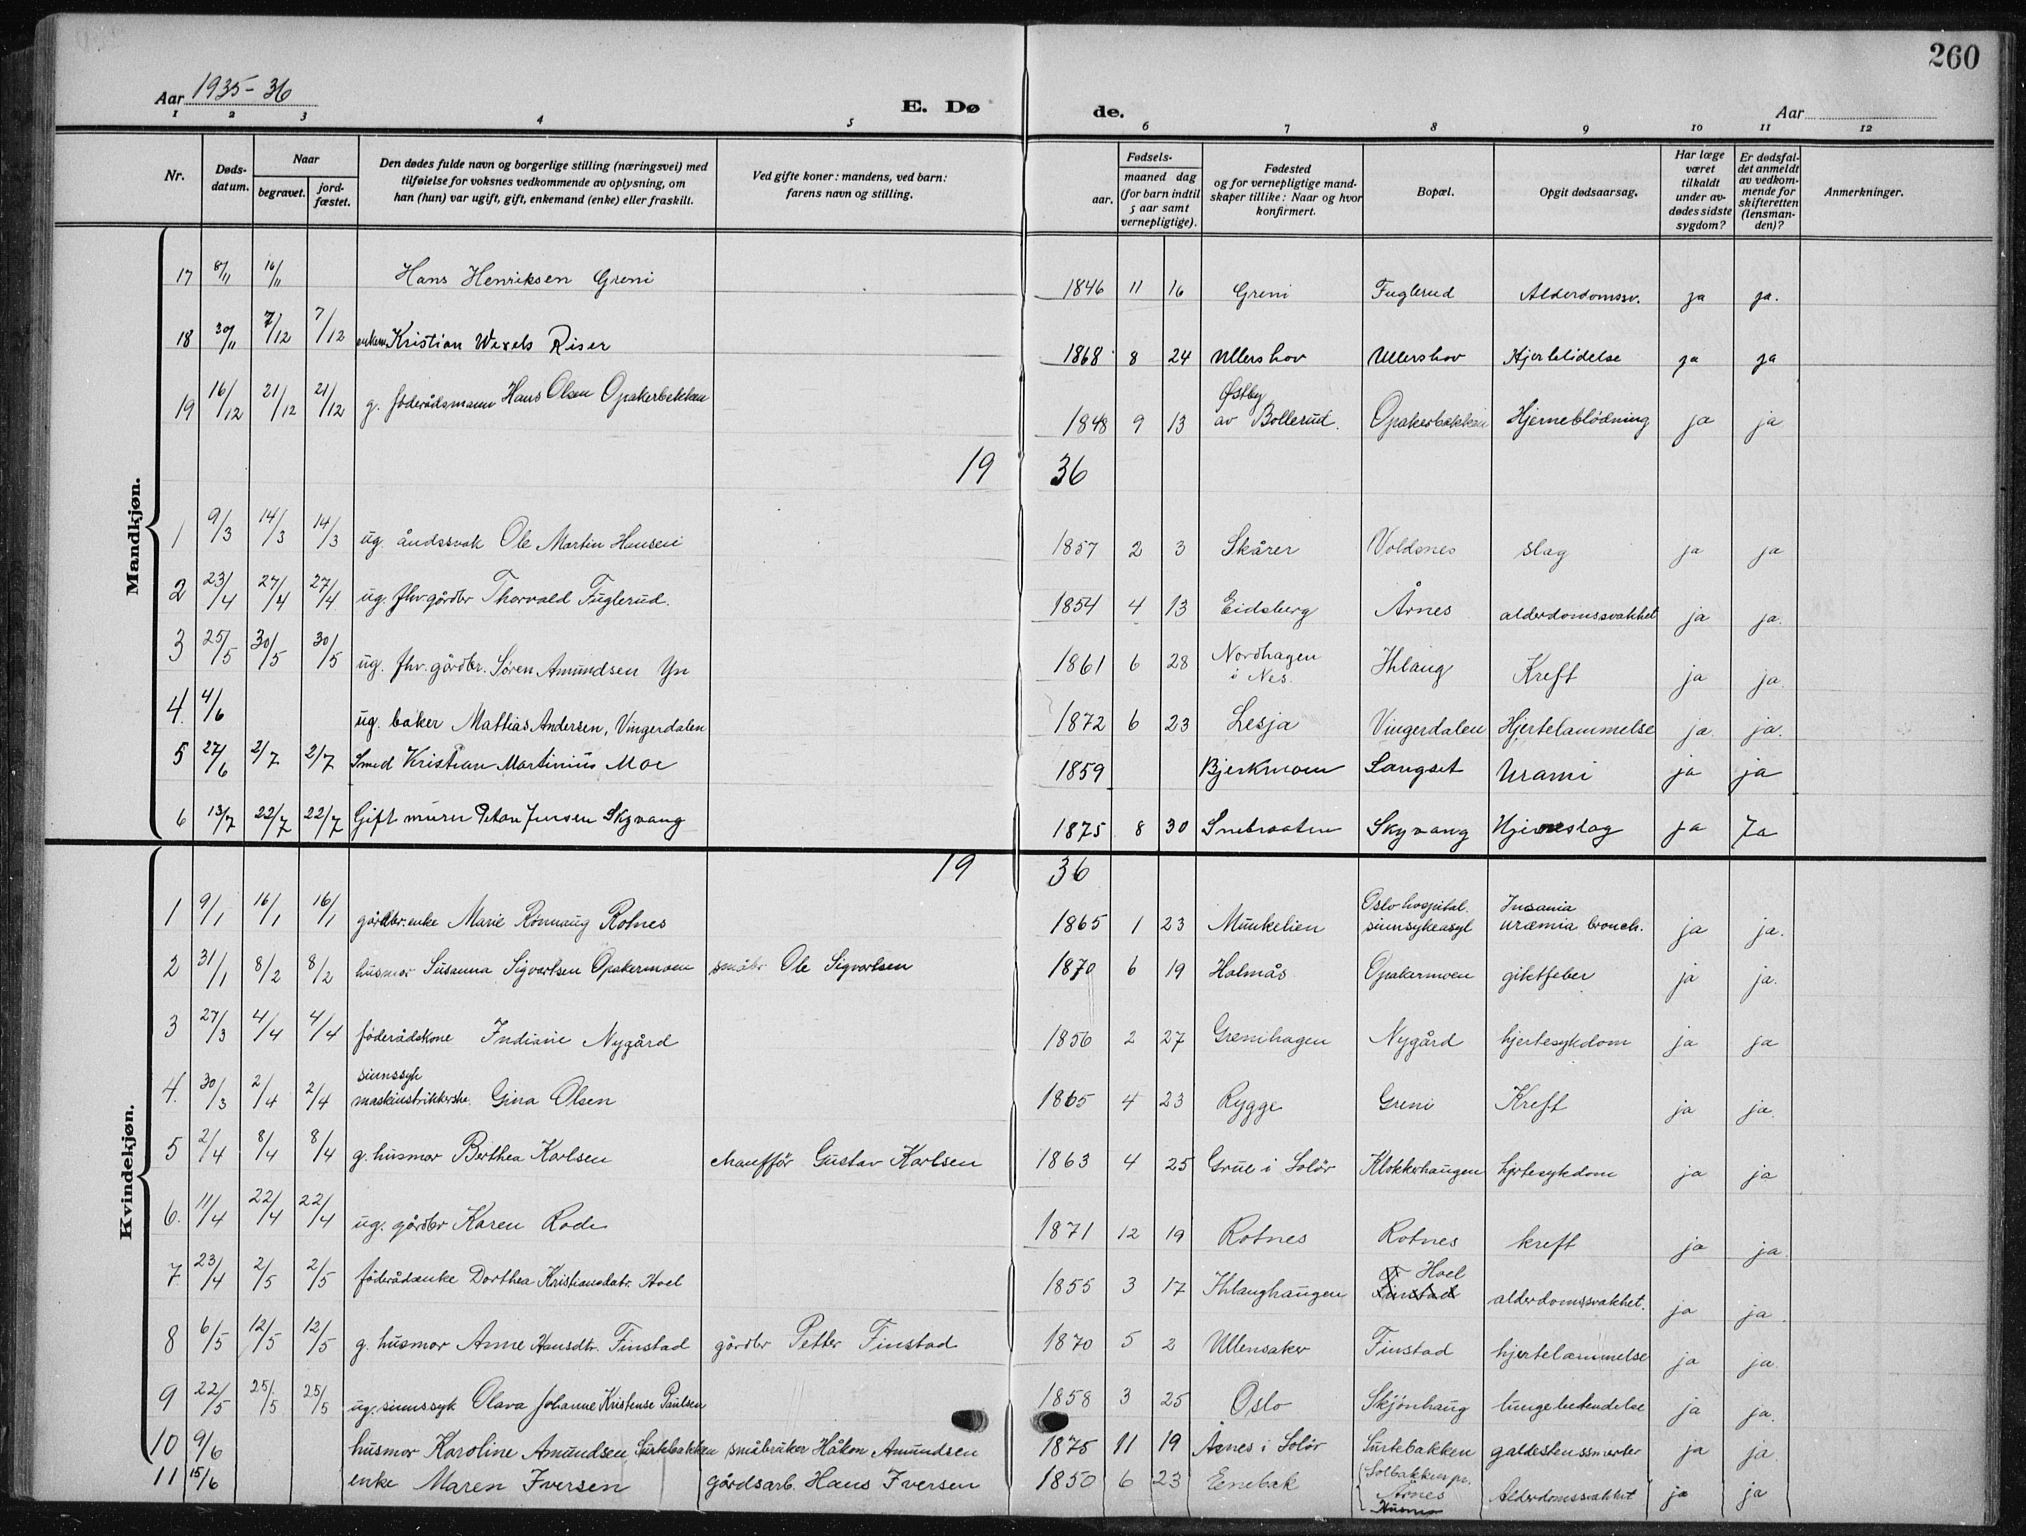 260
Aar 1935-36
E. Dø
de.
Aar
1 2 3 4 5 6 7 8 9 10 11 12
Nr.
Døds-
datum.
Naar
begravet.
jord-
fæstet.
Den dødes fulde navn og borgerlige stilling (næringsvei) med
tilføielse for voksnes vedkommende av oplysning, om
han (hun) var ugift, gift, enkemand (enke) eller fraskilt.
Ved gifte koner: mandens, ved barn:
farens navn og stilling.
Fødsels-
aar.
maaned dag
(for barn indtil
5 aar samt
vernepligtige).
Fødested
og for vernepligtige mand-
skaper tillike: Naar og hvor
konfirmert.
Bopæl.
Opgit dødsaarsag.
Har læge
været
tilkaldt
under av-
dødes sidste
sygdom?
Er dødsfal-
det anmeldt
av vedkom-
mende for
skifteretten
(lensman-
den)?
Anmerkninger.
Mandkjøn.
17 8/11 16/11 Hans Henriksen Greni 1846 11 16 Greni Fuglerud Alderdomssv. ja ja.
18 30/11 7/12 7/12 enkem Kristian Wexels Riser 1868 8 24 Ullershov Ullershov Hjertelidelse ja ja
19 16/12 21/12 21/12 g. føderådsmann Hans Olsen Opakerbekken 1848 9 13 Østby av Bollerud. Opakerbakken Hjerneblødning ja ja
19 36
1 9/3 14/3 14/3 ug. åndssvak Ole Martin Hansen 1857 2 3 Skårer Voldsnes slag ja ja
2 23/4 27/4 27/4 ug. fhv gårdbr Thorvald Fuglerud. 1854 4 13 Eidsberg Årnes alderdomssvakhet ja ja.
3 25/5 30/5 30/5 ug. fhv. gårdbr. Søren Amundsen Yn 1861 6 28 Nordhagen i Nes. Ihlang Kreft ja ja.
4. 4/6 ug. baker Mattias Andersen, Vingerdalen 1872 6 23 Lesja Vingerdalen Hjertelammelse ja. ja.
5 27/6 2/7 2/7 Smed Kristian Martinius Moe 1859 Bjerkmoen Langset Urami ja ja
6 13/7 22/7 22/7 Gift murer Jensen Skyvang 1875 8 30 Snebraaten Skyvang ja Ja
19 36
Kvindekjøn.
1 9/1 16/1 16/1 gårdbr.enke Marie Rønnaug Rotnes 1865 1 23 Munkelien Oslo hospital. sinnsykeasyl Insania uræmia bronch. ja ja.
2 31/1 8/2 8/2 husmor Susanna Sigvartsen Opakermoen småbr. Ole Sigvartsen 1870 6 19 Holmås Opakermoen giktfeber ja ja.
3 27/3 4/4 4/4 føderådskone Indiane Nygård 1856 2 27 Grenihagen Nygård hjertesykdom ja ja
4. 30/3 2/4 2/4 sinnssyk maskinstrikkerske. Gina Olsen 1865 4 23 Rygge Greni Kreft ja ja.
5 2/4 8/4 8/4 g. husmor Berthea Karlsen chauffør Gustav Karlsen 1863 4 25 Grue i Solør Klokkerhaugen hjertesykdom ja ja
6. 11/4 22/4 22/4 ug. gårdbr Karen Rode 1871 12 19 Rotnes Rotnes kreft ja ja
7 23/4 2/5 2/5 føderådsenke Dorthea Kristiansdatr. Hoel 1855 3 17 Ihlanghaugen Hoel Finstad alderdomssvakhet. ja ja.
8 6/5 12/5 12/5 g. husmor Anne Hansdtr. Finstad gårdbr Petter Finstad 1870 5 2 Ullensaker Finstad hjertelammelse ja ja.
9 22/5 25/5 25/5 ug. sinnssyk Olava Johanne Kristense Paulsen 1858 3 25 Oslo Skjønhaug lungebetendelse ja ja.
10 9/6 husmor Karoline Amundsen Surkebakken småbruker Håkon Amundsen 1875 11 19 Åsnes i Solør Surkebakken galdestenssmerter ja ja.
11 15/6 enke Maren Iversen gårdsarb. Hans Iversen 1850 6 23 Enebak Solbakken pr. Årnes Alderdomssvakhet ja ja